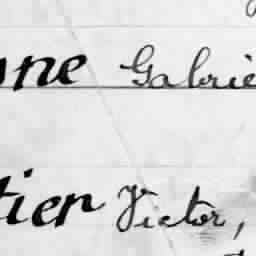 ne Gabrie
tier Victor,